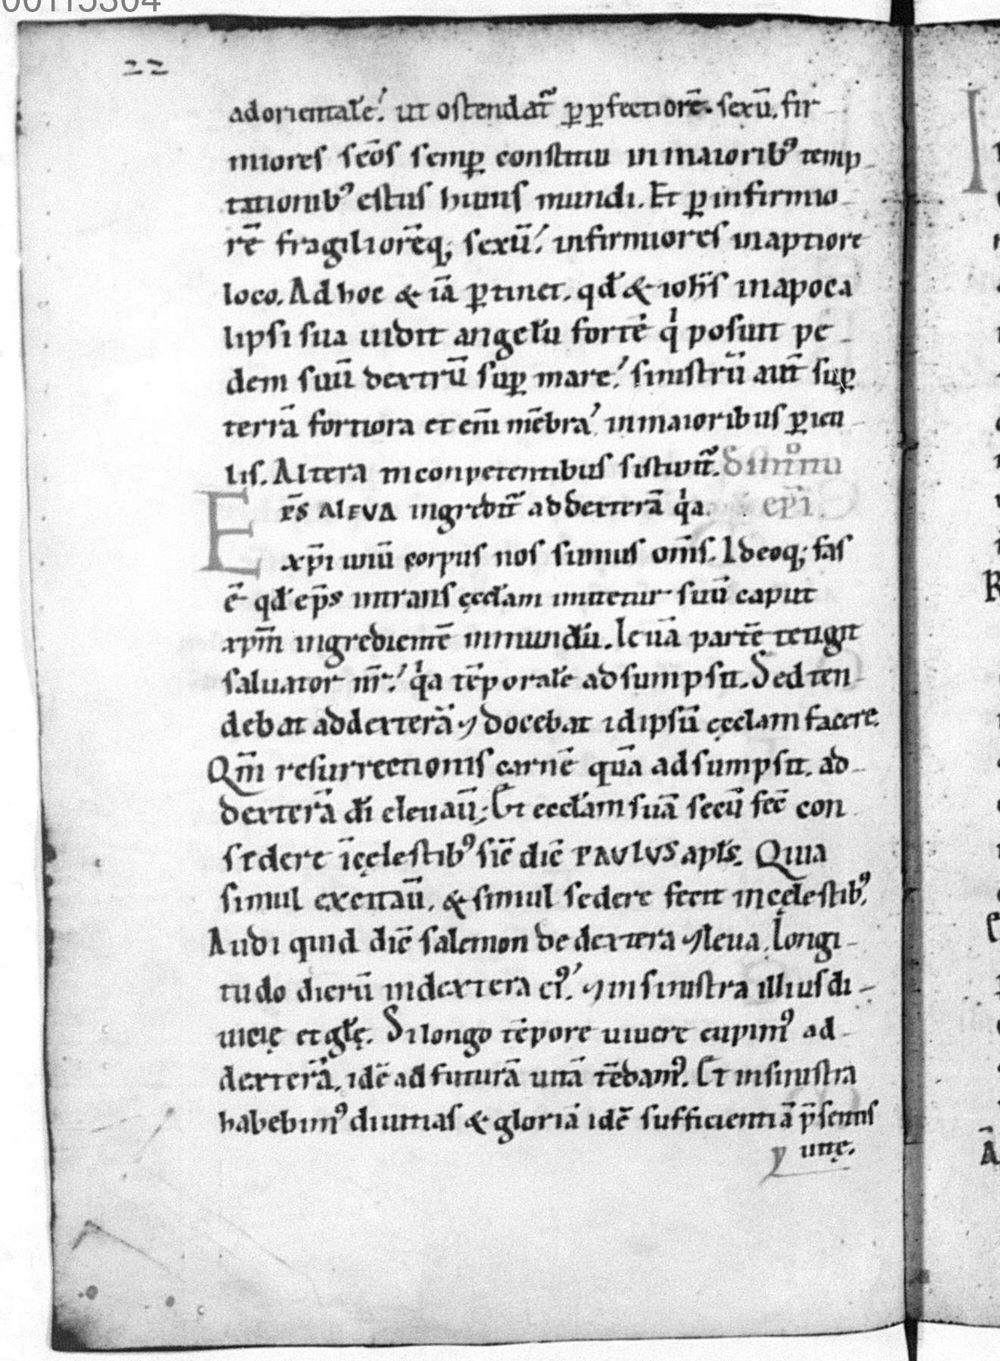 00115304
22
adorientale᷒. ut ostendat᷒ ꝑ ꝑfectiorē. sexū. fir
miores scōs semꝑ constitui in maiorib᷒ temp
tationib᷒ estus huius mundi. Et ꝑ infirmio
rē fragiliorēq; sexū᷒. infirmiores in aptiore
loco. Ad hoc & iā ꝑtinet. qđ & ioħs in apoca
lipsi sua uidit angelū fortē q̇ posuit pe
dem suū dextrū suꝑ mare. sinistrū aut̄ suꝑ
terrā fortiora et eni᷒ mēbra in maioribus ꝑicu
lis. Altera in conpetentibus sistunt᷒. dextro introitu
eps ALEVA ingredit᷒ ad dexterā q̇a. ep̄i
E xp̄i unū corpus nos sumus om̄s. Ideoq; fas
ē qđ ep̄s intrans ęcclam imitetur suū caput
xpm̄ ingredientē in mundū. leuā partē tetigit
saluator nr̄. q̇a tēporale adsumpsit. Sed ten
debat ad dexterā ⁊ docebat id ipsū ęcclam facere.
Qm̄ resurrectionis carnē quā adsumpsit. ad
dexterā di eleuau᷒; Et ecclam suā secū fec̄ con
sedere ī cęlestib᷒ sic̄ dic̄ PAULUS apls. Quia
simul excitau᷒. & simul sedere fecit in cęlestib᷒.
Audi quid dic̄ salemon de dextera ⁊ leua. Longi
tudo dierū in dextera ei᷒. ⁊ in sinistra illius di
uicię et glę. Si longo tēpore uiuere cupim᷒ ad
dexterā. idē ad futurā uitā tēdam᷒. Et in sinistra
habebim᷒ diuitias & gloriā idē sufficientiā p̄sentis
uitę.